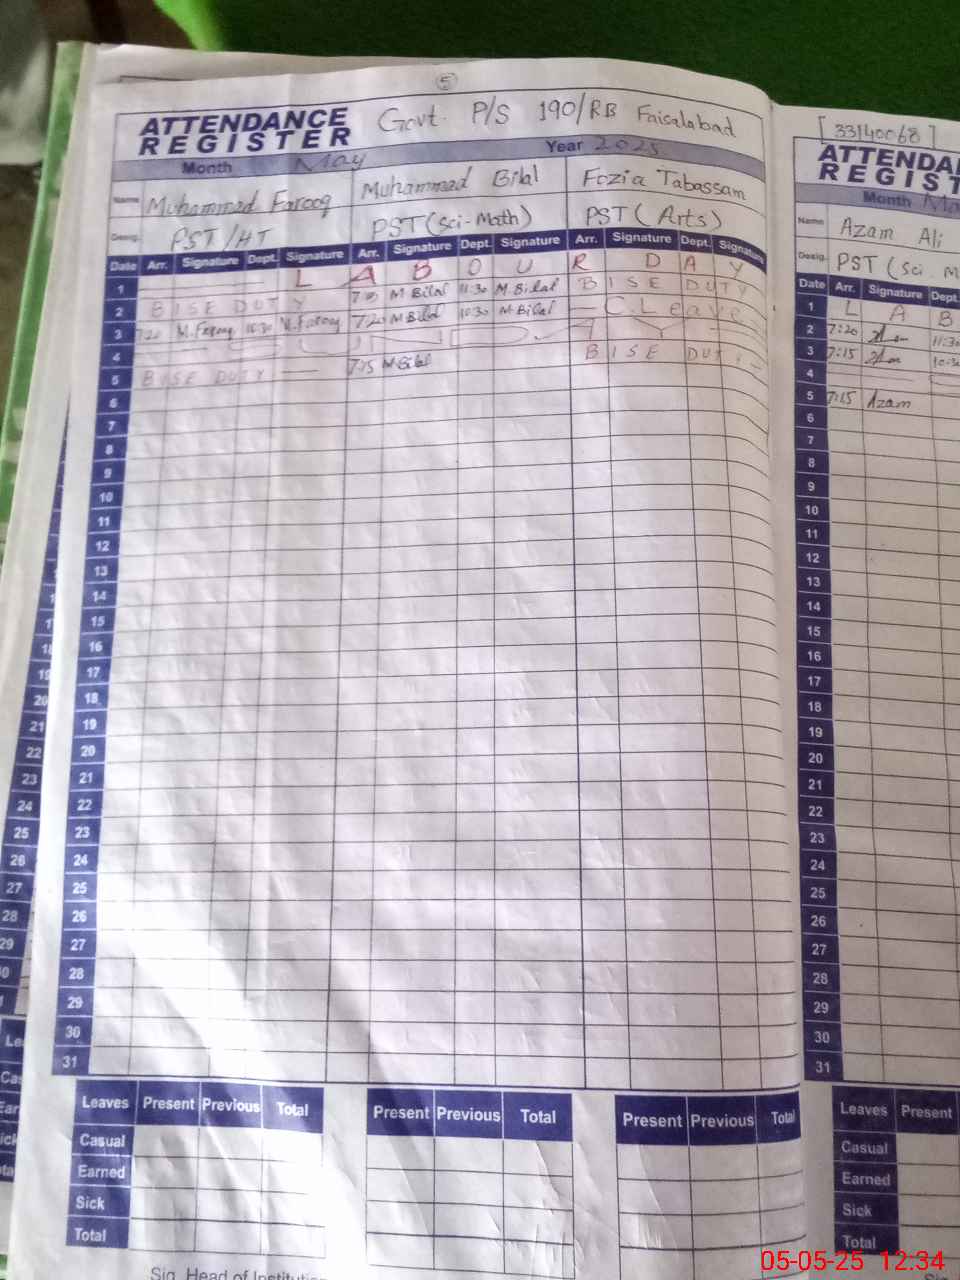 5
ATTENDANCE REGISTER Govt. P/S 190/RB Faisalabad
Month May Year 2025
Name Muhammad Farooq Muhammad Bilal Fozia Tabassam
Desig. PST/HT PST (Sci-Math) PST (Arts)
Date Arr. Signature Dept. Signature Arr. Signature Dept. Signature Arr. Signature Dept. Signature
1 L A B O U R D A Y
2 BISE DUTY M Bilal 11:30 M. Bilal BISE DUTY
3 7:20 M. Farooq 10:30 M. Farooq 7:20 M Bilal 10:30 M Bilal — C. Leave
4 S U N D A Y
5 BISE DUTY — 7:15 M Bilal BISE DUTY
6
7
8
9
10
11
12
13
14
15
16
17
18
19
20
21
22
23
24
25
26
27
28
29
30
31
Leaves Present Previous Total Present Previous Total Present Previous Total
Casual
Earned
Sick
Total
Sig. Head of
[33140068]
ATTENDA
REGIST
Month Ma
Name Azam Ali
Desig. PST (Sci. M
Date Arr. Signature Dept.
1 L A B
2 7:20 11:30
3 7:15 10:30
4
5 7:15 Azam
6
7
8
9
10
11
12
13
14
15
16
17
18
19
20
21
22
23
24
25
26
27
28
29
30
31
Leaves Present
Casual
Earned
Sick
Total
Sig
20
21
22
23
24
25
26
27
28
29
05-05-25 12:34